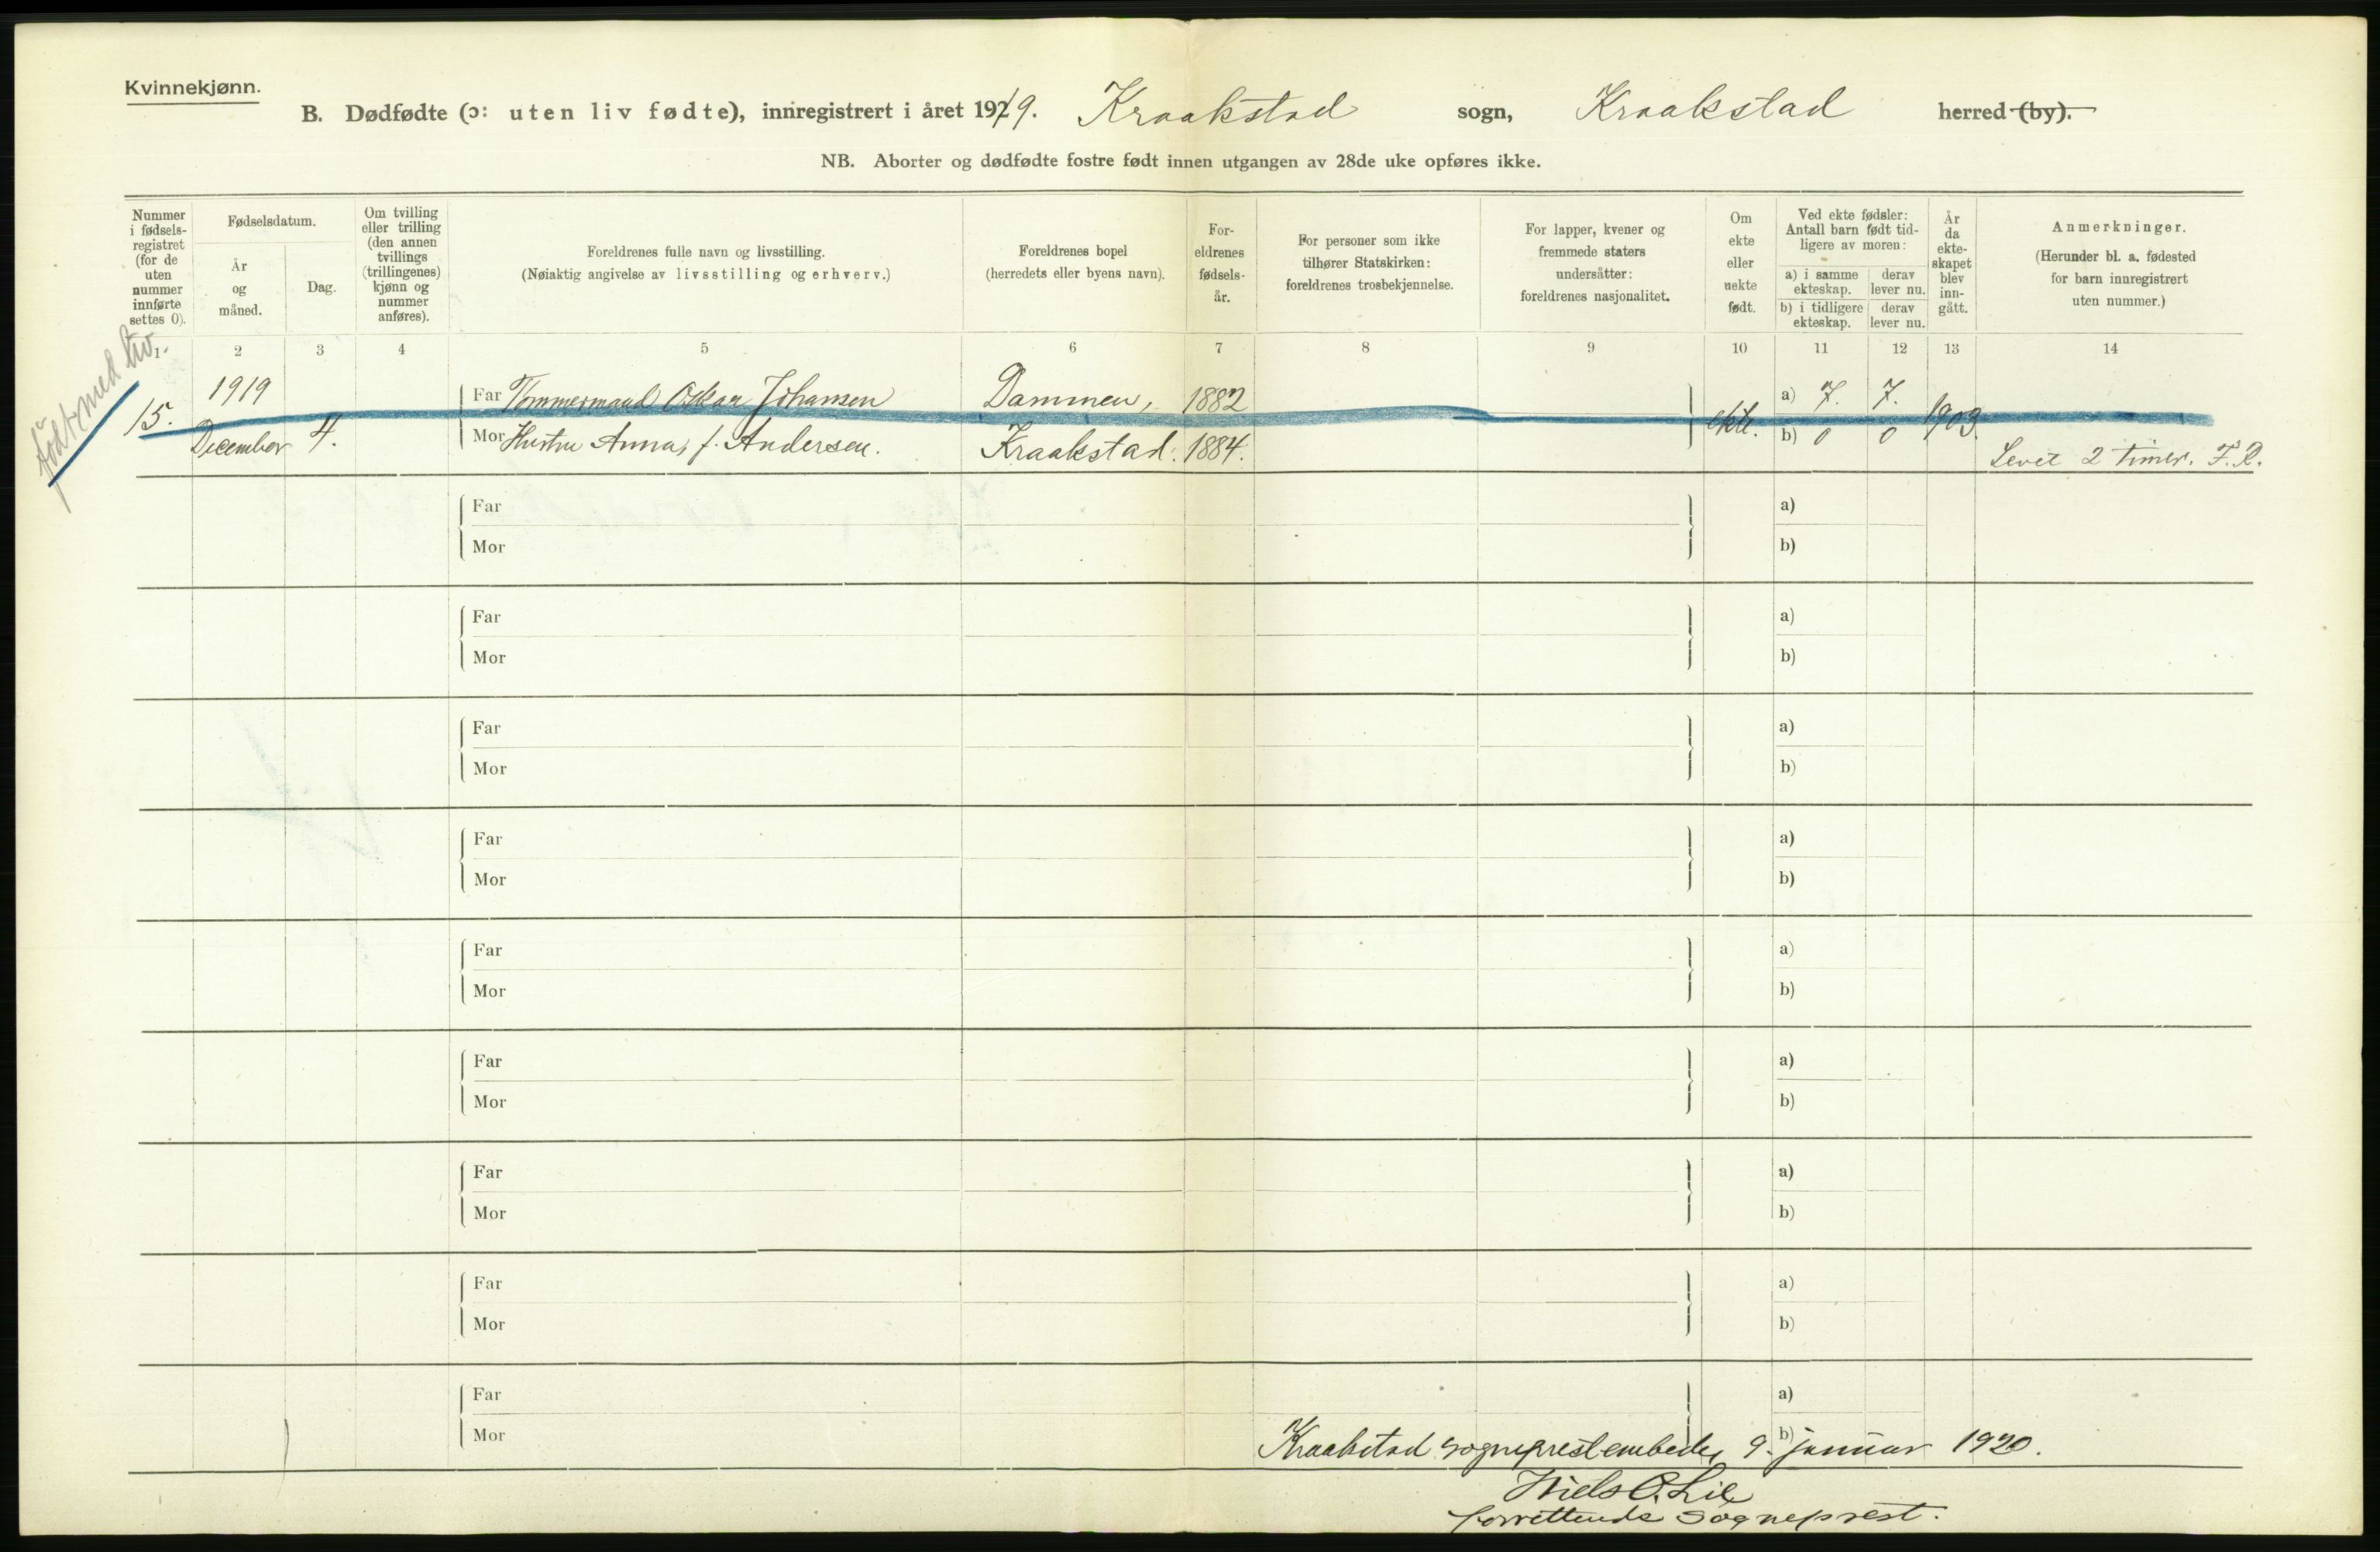 Kvinnekjønn.
B. Dødfødte (ɔ: uten liv fødte), innregistrert i året 1919. Kraakstad sogn, Kraakstad herred (by).
NB. Aborter og dødfødte fostre født innen utgangen av 28de uke opføres ikke.
Nummer i fødsels-registret (for de uten nummer innførte settes 0).
Fødselsdatum.
År og måned.
Dag.
Om tvilling eller trilling (den annen tvillings (trillingenes) kjønn og nummer anføres).
Foreldrenes fulle navn og livsstilling.
(Nøiaktig angivelse av livsstilling og erhverv.)
Foreldrenes bopel
(herredets eller byens navn).
For-eldrenes fødsels-år.
For personer som ikke tilhører Statskirken: foreldrenes trosbekjennelse.
For lapper, kvener og fremmede staters undersåtter: foreldrenes nasjonalitet.
Om ekte eller uekte født.
Ved ekte fødsler: Antall barn født tid-ligere av moren:
a) i samme ekteskap.
derav lever nu.
b) i tidligere ekteskap.
derav lever nu.
År da ekte-skapet blev inn-gått.
Anmerkninger.
(Herunder bl. a. fødested for barn innregistrert uten nummer.)
1 2 3 4 5 6 7 8 9 10 11 12 13 14
født med liv.
15. 1919 December 4.
Far Tømmermand Oskar Johansen Dammen, 1882 a) 7. 7.
Mor Hustru Anna, f. Andersen. Kraakstad. 1884. ekte. b) 0 0 1903.
Levet 2 timer. F.R.
Far a)
Mor b)
Far a)
Mor b)
Far a)
Mor b)
Far a)
Mor b)
Far a)
Mor b)
Far a)
Mor b)
Far a)
Mor b)
Far a)
Mor b)
Far a)
Mor b)
Kraakstad sogneprestembede, 9. januar 1920.
Niels O. Lie
forrettende sogneprest.